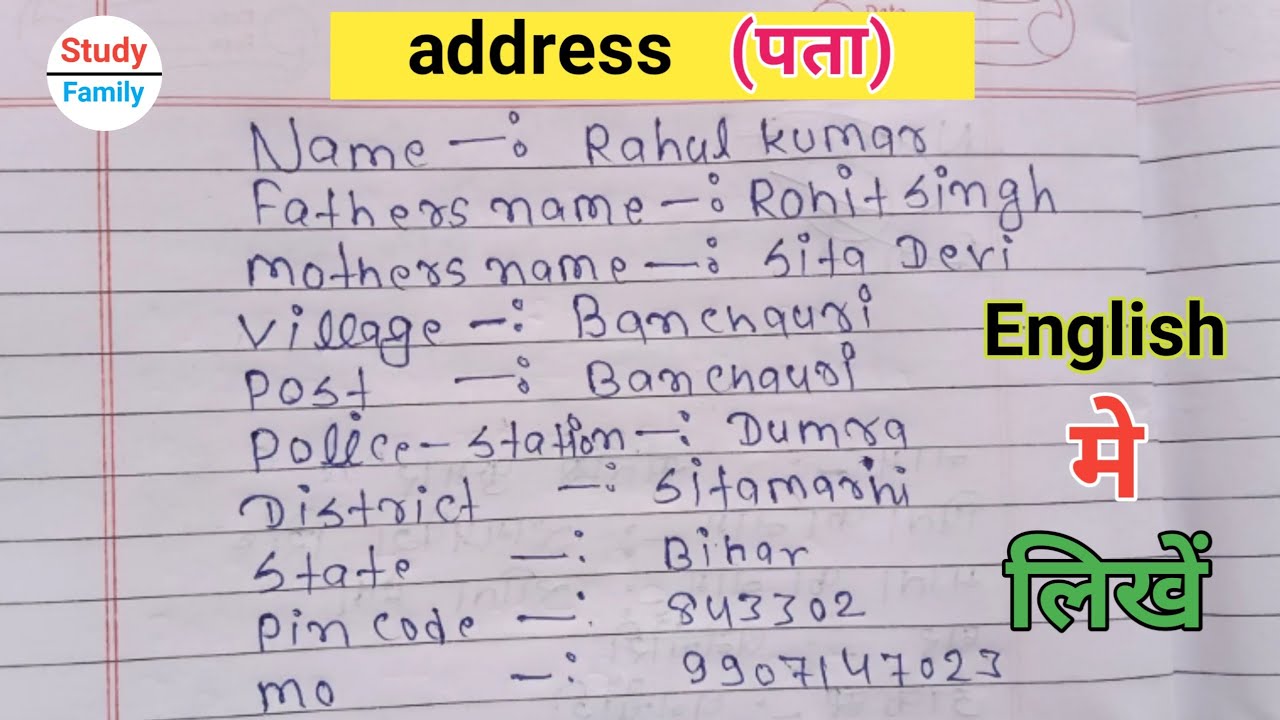 Study
Family
address (पता)
Name -: Rahul kumar
Fathers name -: Rohit Singh
mothers name -: Sita Devi
Village -: Banchauri
Post -: Banchauri
Police-Station -: Dumra
District -: Sitamarhi
State -: Bihar
Pin code -: 843302
mo -: 9907147023
English
मे
लिखें